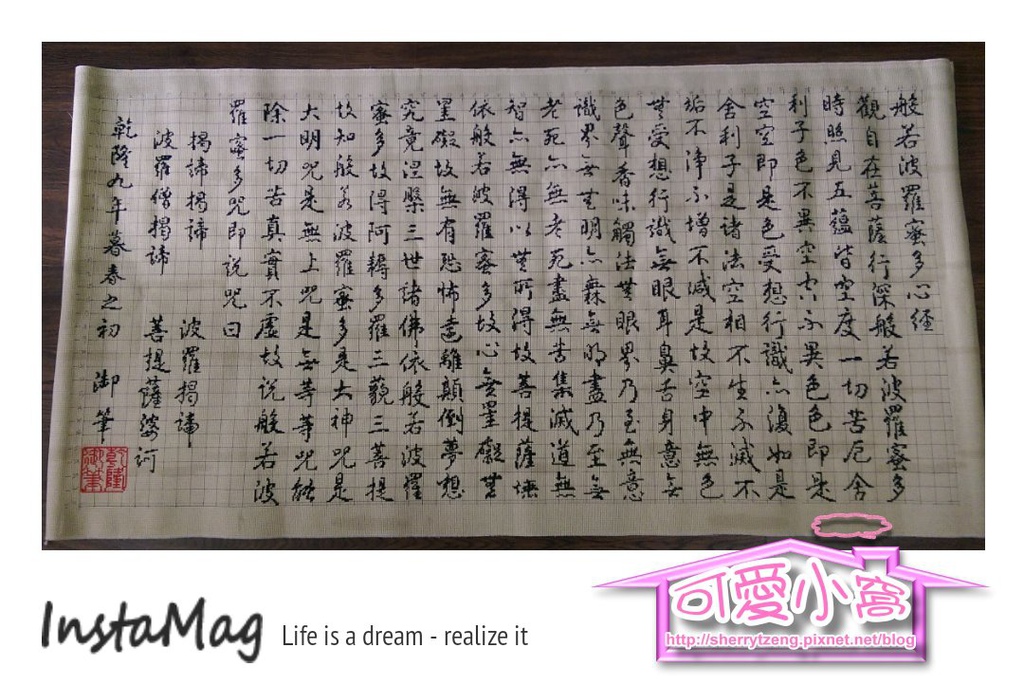 般若波羅蜜多心経
觀自在菩薩行深般若波羅蜜多
時照見五蘊皆空度一切苦厄舍
利子色不異空空不異色色即是
空空即是色受想行識亦復如是
舍利子是諸法空相不生不滅不
垢不淨不增不減是故空中無色
無受想行識無眼耳鼻舌身意無
色聲香味觸法無眼界乃至無意
識界無無明亦無無明盡乃至無
老死亦無老死盡無苦集滅道無
智亦無得以無所得故菩提薩埵
依般若波羅蜜多故心無罣礙無
罣礙故無有恐怖遠離顛倒夢想
究竟涅槃三世諸佛依般若波羅
蜜多故得阿耨多羅三藐三菩提
故知般若波羅蜜多是大神咒是
大明咒是無上咒是無等等咒能
除一切苦真實不虛故說般若波
羅蜜多咒即說咒曰
揭諦揭諦 波羅揭諦
波羅僧揭諦 菩提薩婆訶
乾隆九年暮春之初 御筆
乾隆御筆
InstaMag Life is a dream - realize it
可愛小窩
http://sherrytzeng.pixnet.net/blog